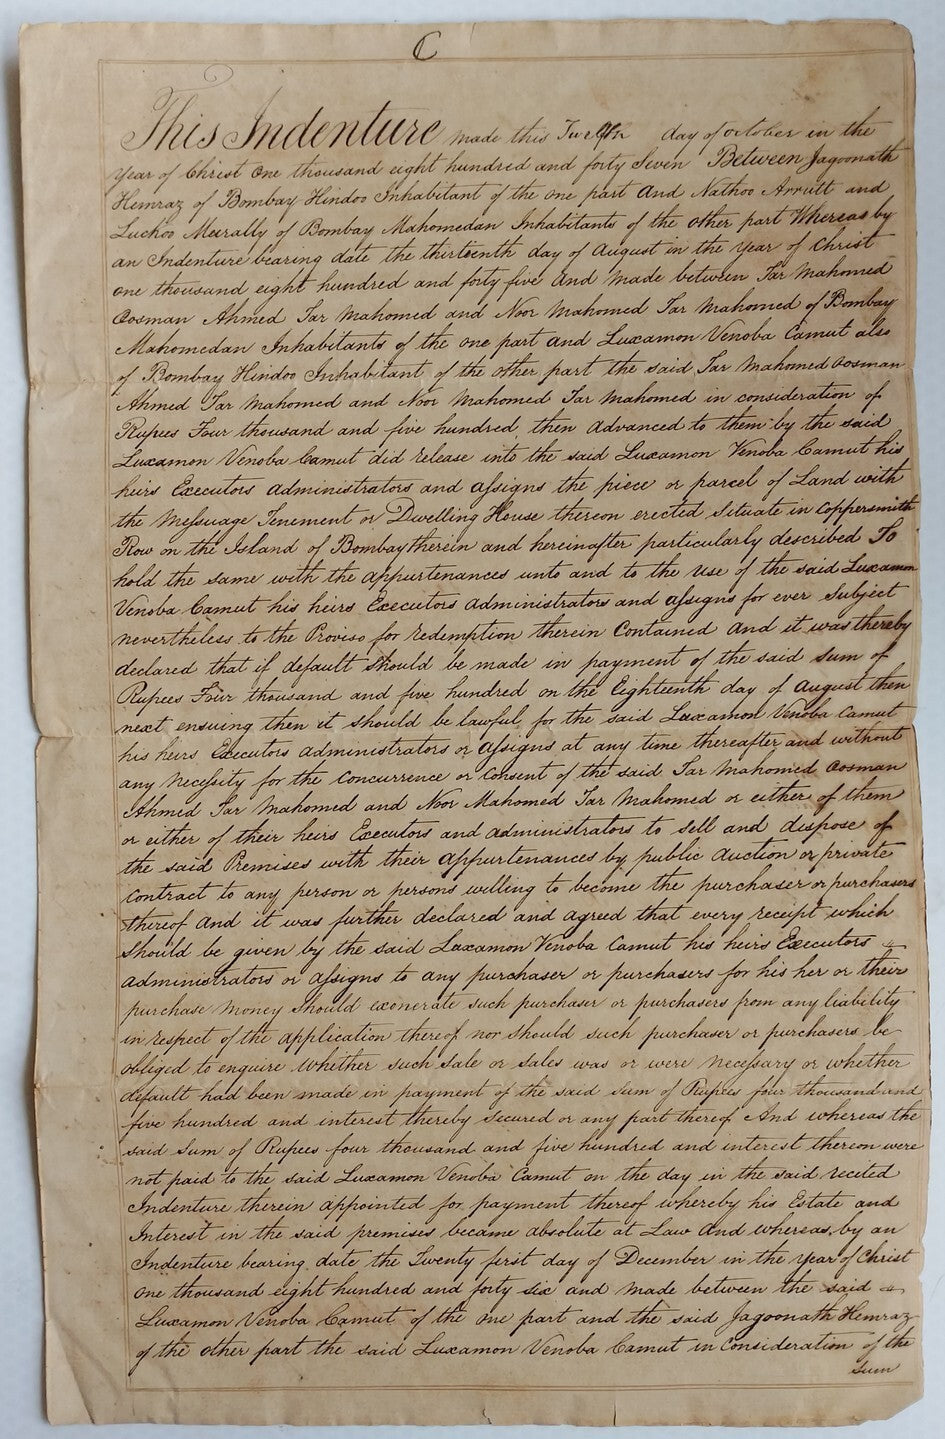 C
This Indenture made this Twelfth day of October in the
Year of Christ One thousand eight hundred and forty Seven Between Jagoonath
Hemraz of Bombay Hindoo Inhabitant of the one part And Nathoo Arrutt and
Luchoo Meerally of Bombay Mahomedan Inhabitants of the other part Whereas by
an Indenture bearing date the thirteenth day of August in the Year of Christ
one thousand eight hundred and forty five And made between Tar Mahomed
Oosman Ahmed Tar Mahomed and Noor Mahomed Tar Mahomed of Bombay
Mahomedan Inhabitants of the one part and Luxamon Venoba Camut also
of Bombay Hindoo Inhabitant of the other part the said Tar Mahomed Oosman
Ahmed Tar Mahomed and Noor Mahomed Tar Mahomed in consideration of
Rupees Four thousand and five hundred then Advanced to them by the said
Luxamon Venoba Camut did release into the said Luxamon Venoba Camut his
heirs Executors Administrators and assigns the piece or parcel of Land with
the Messuage Tenement or Dwelling House thereon erected Situate in Coppersmith
Row on the Island of Bombay therein and hereinafter particularly described To
hold the same with the appurtenances unto and to the use of the said Luxamon
Venoba Camut his heirs Executors Administrators and assigns for ever Subject
nevertheless to the Proviso for redemption therein Contained And it was thereby
declared that if default should be made in payment of the said Sum of
Rupees Four thousand and five hundred on the Eighteenth day of August then
next ensuing then it should be lawful for the said Luxamon Venoba Camut
his heirs Executors Administrators or assigns at any time thereafter and without
any Necessity for the Concurrence or Consent of the said Tar Mahomed Oosman
Ahmed Tar Mahomed and Noor Mahomed Tar Mahomed or either of them
or either of their heirs Executors and administrators to sell and dispose of
the said Premises with their appurtenances by public Auction or private
Contract to any person or persons willing to become the purchaser or purchasers
thereof And it was further declared and agreed that every receipt which
should be given by the said Luxamon Venoba Camut his heirs Executors
administrators or assigns to any purchaser or purchasers for his her or their
purchase money should exonerate such purchaser or purchasers from any liability
in respect of the application thereof nor should such purchaser or purchasers be
obliged to enquire whether such sale or sales was or were Necessary or whether
default had been made in payment of the said Sum of Rupees four thousand and
five hundred and interest thereby Secured or any part thereof And whereas the
said Sum of Rupees four thousand and five hundred and interest thereon were
not paid to the said Luxamon Venoba Camut on the day in the said recited
Indenture therein appointed for payment thereof whereby his Estate and
Interest in the said premises became absolute at Law And whereas by an
Indenture bearing date the Twenty first day of December in the Year of Christ
One thousand eight hundred and forty six and made between the said
Luxamon Venoba Camut of the one part and the said Jagoonath Hemraz
of the other part the said Luxamon Venoba Camut in Consideration of the
Sum